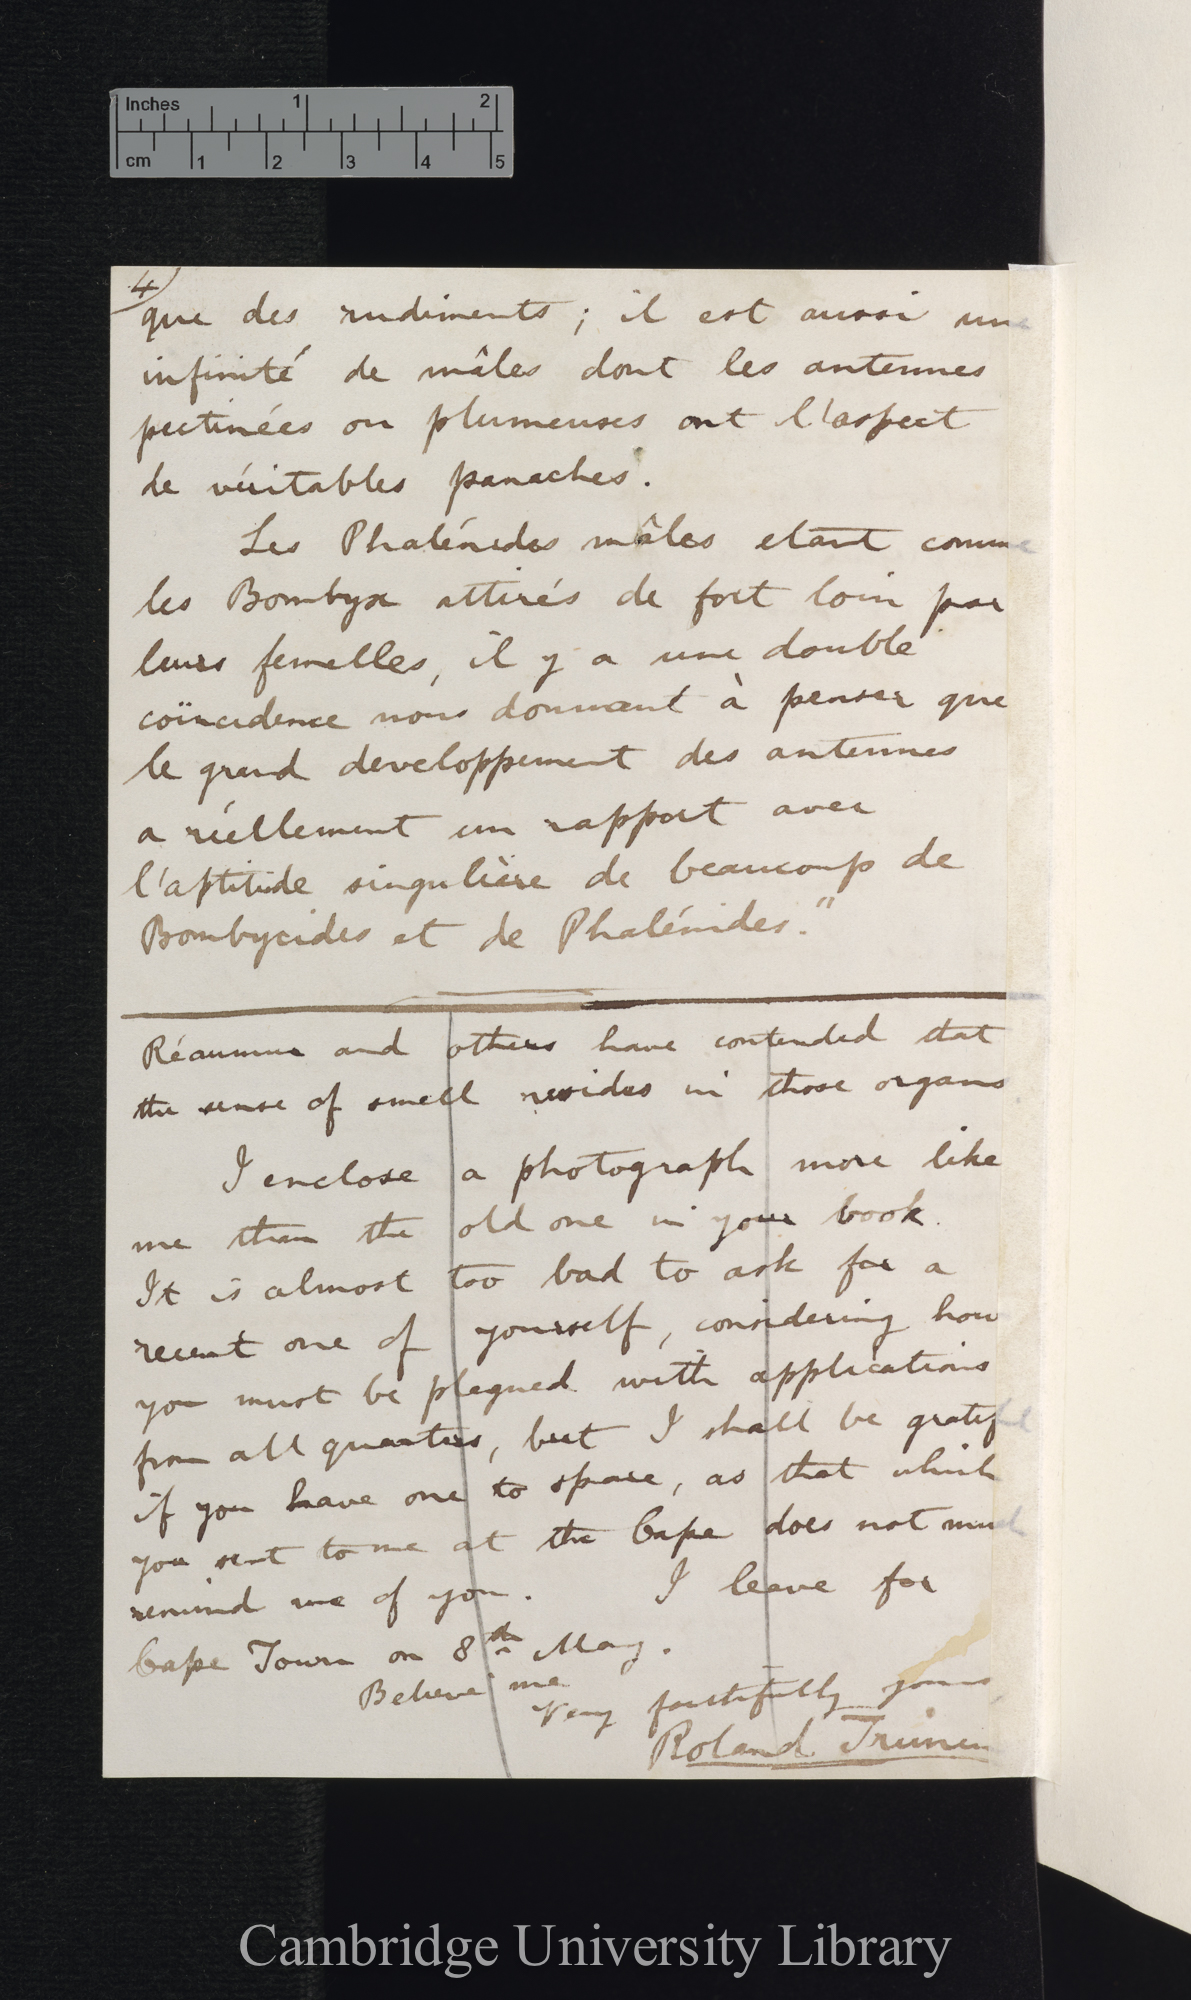 Inches 1 2
cm 1 2 3 4 5
4)
que des rudiments ; il est aussi une
infinité de mâles dont les antennes
pectinées ou plumeuses ont l'aspect
de véritables panaches.
Les Phalénides mâles etant comme
les Bombyx attirés de fort loin par
leurs femelles, il y a une double
coïncidence nous donnant à penser que
le grand developpement des antennes
a réellement un rapport avec
l'aptitude singulière de beaucoup de
Bombycides et de Phalénides."
Réaumur and others have contended that
the sense of smell resides in those organs
I enclose a photograph more like
me than the old one in your book.
It is almost too bad to ask for a
recent one of yourself, considering how
you must be plagued with applications
from all quarters, but I shall be grateful
if you have one to spare, as that which
you sent to me at the Cape does not much
remind me of you. I leave for
Cape Town on 8th May.
Believe me
Very faithfully yours,
Roland Trimen
Cambridge University Library